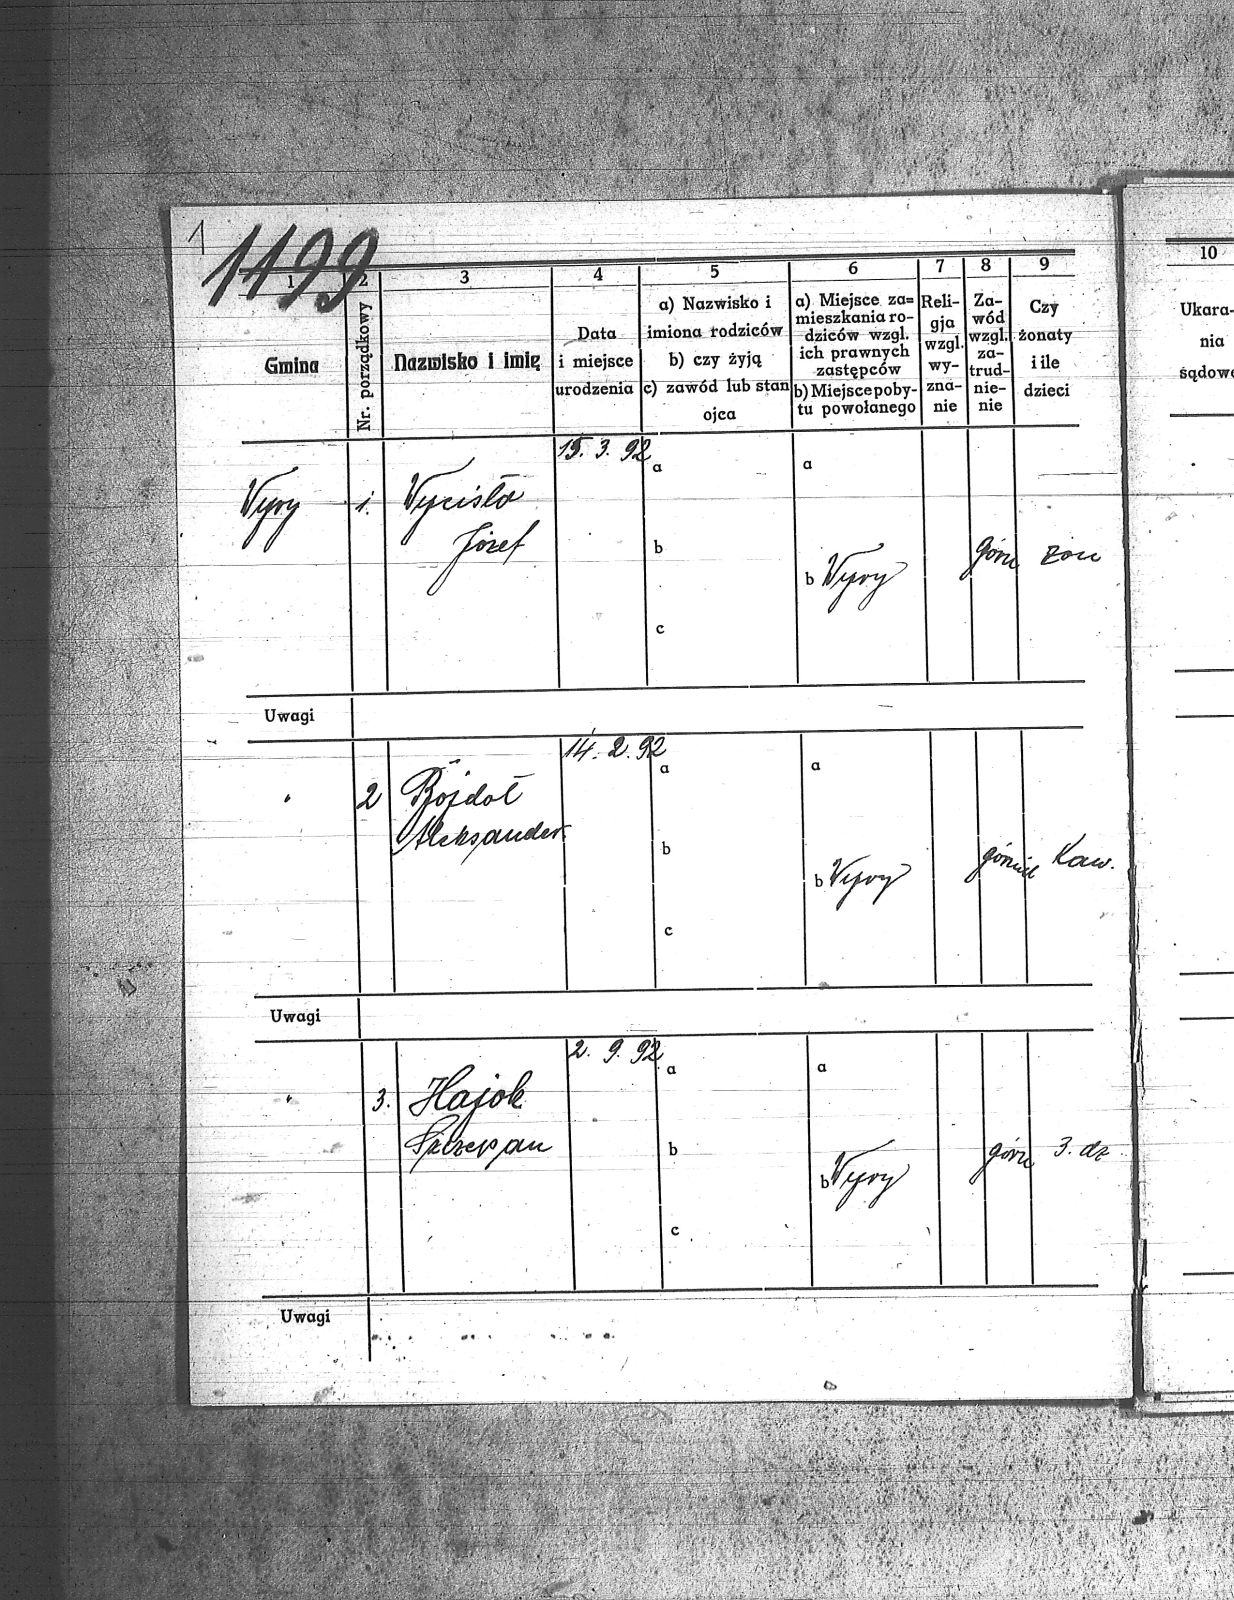 1
1499
1
2
3
4
5
6
7
8
9
10
Gmina
Nr. porządkowy
Nazwisko i imię
Data
i miejsce
urodzenia
a) Nazwisko i
imiona rodziców
b) czy żyją
c) zawód lub stan
ojca
a) Miejsce za=
mieszkania ro-
dziców wzgl.
ich prawnych
zastępców
b) Miejsce poby-
tu powołanego
Reli-
gja
wzgl.
wy-
zna-
nie
Za-
wód
wzgl.
za-
trud-
nie-
nie
Czy
żonaty
i ile
dzieci
Ukara-
nia
sądowe
Wyry
1.
Wycisło
Józef
15. 3. 92
a
b
c
a
b Wyry
górn
żon
Uwagi
"
2
Bojdoł
Aleksander
14. 2. 92
a
b
c
a
b Wyry
górnik
Kaw.
Uwagi
"
3.
Hajok
Szczepan
2. 9. 92
a
b
c
a
b Wyry
górn
3. dz
Uwagi